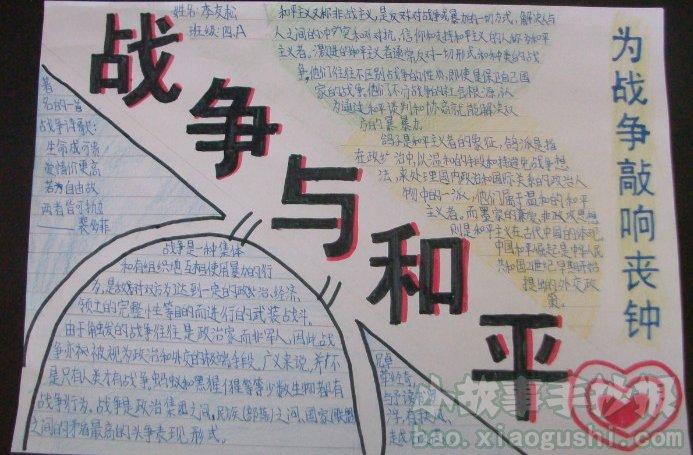 姓名:李友松
班级:四.A
战争与和平
为战争敲响丧钟
和平主义又称非战主义,是反对对战争或暴力的一切方式,解决人与
人之间的冲突和对抗,信仰和支持和平主义的人称为和平
主义者。激进的和平主义者通常反对一切形式和种类的战
争,他们往往不区别战争的性质,即使是保卫自己国
家的战争,他们不
为通过和平谈判和协商就能解决双
方的
鸽子是和平主义者的象征,鸽派是指
在政治中以温和的
法,来处理国内政治和国际关系的政治人
物中的一派,他们属于温和的和平
主义者。而墨家的兼爱、非攻政思想
则是和平主义在古代中国的体现
中国和平崛起是中华人民
共和国21世纪早期开始
提出的外交政
策。
著
名的一首
战争诗歌:
生命诚可贵
爱情价更高
若为自由故
两者皆可抛
——裴多菲
战争是一种集体
和有组织地互相使用暴力的行
为,是敌对双方为达到一定的政治、经济、
领土的完整性等目的而进行的武装战斗。
由于触发的战争往往是政治家而非军人,因此战
争亦被视为政治和外交的极端手段。广义来说,并不
是只有人类才有战争。蚂蚁和黑猩猩等少数生物都有
战争行为。战争是政治集团之间、民族(部落)之间、国家(联盟)
之间的矛盾最高的斗争表现形式。
小故事手抄报
bao.xiaogushi.com